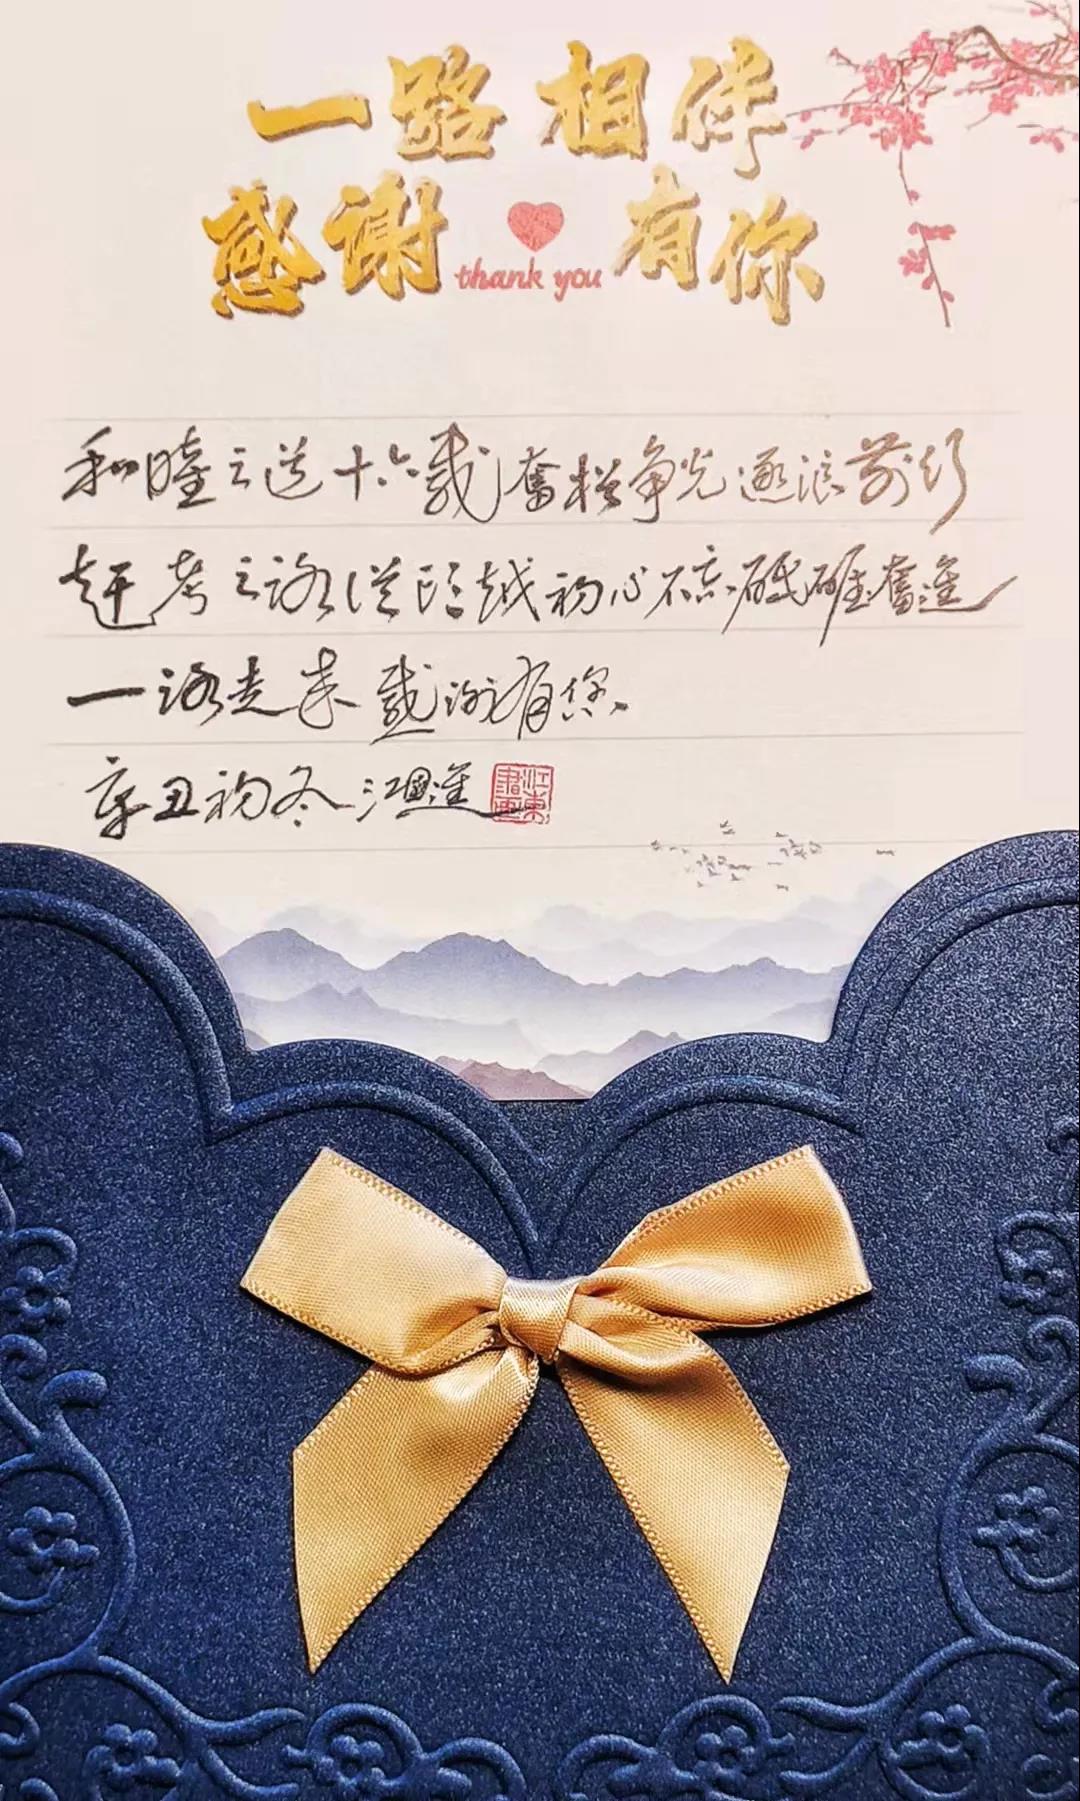 一路相伴
感谢 有你
thank you
和睦之道十六载奋楫争先逐浪前行
赶考之路从头越初心不忘砥砺奋进
一路走来感谢有您
辛丑初冬江国进